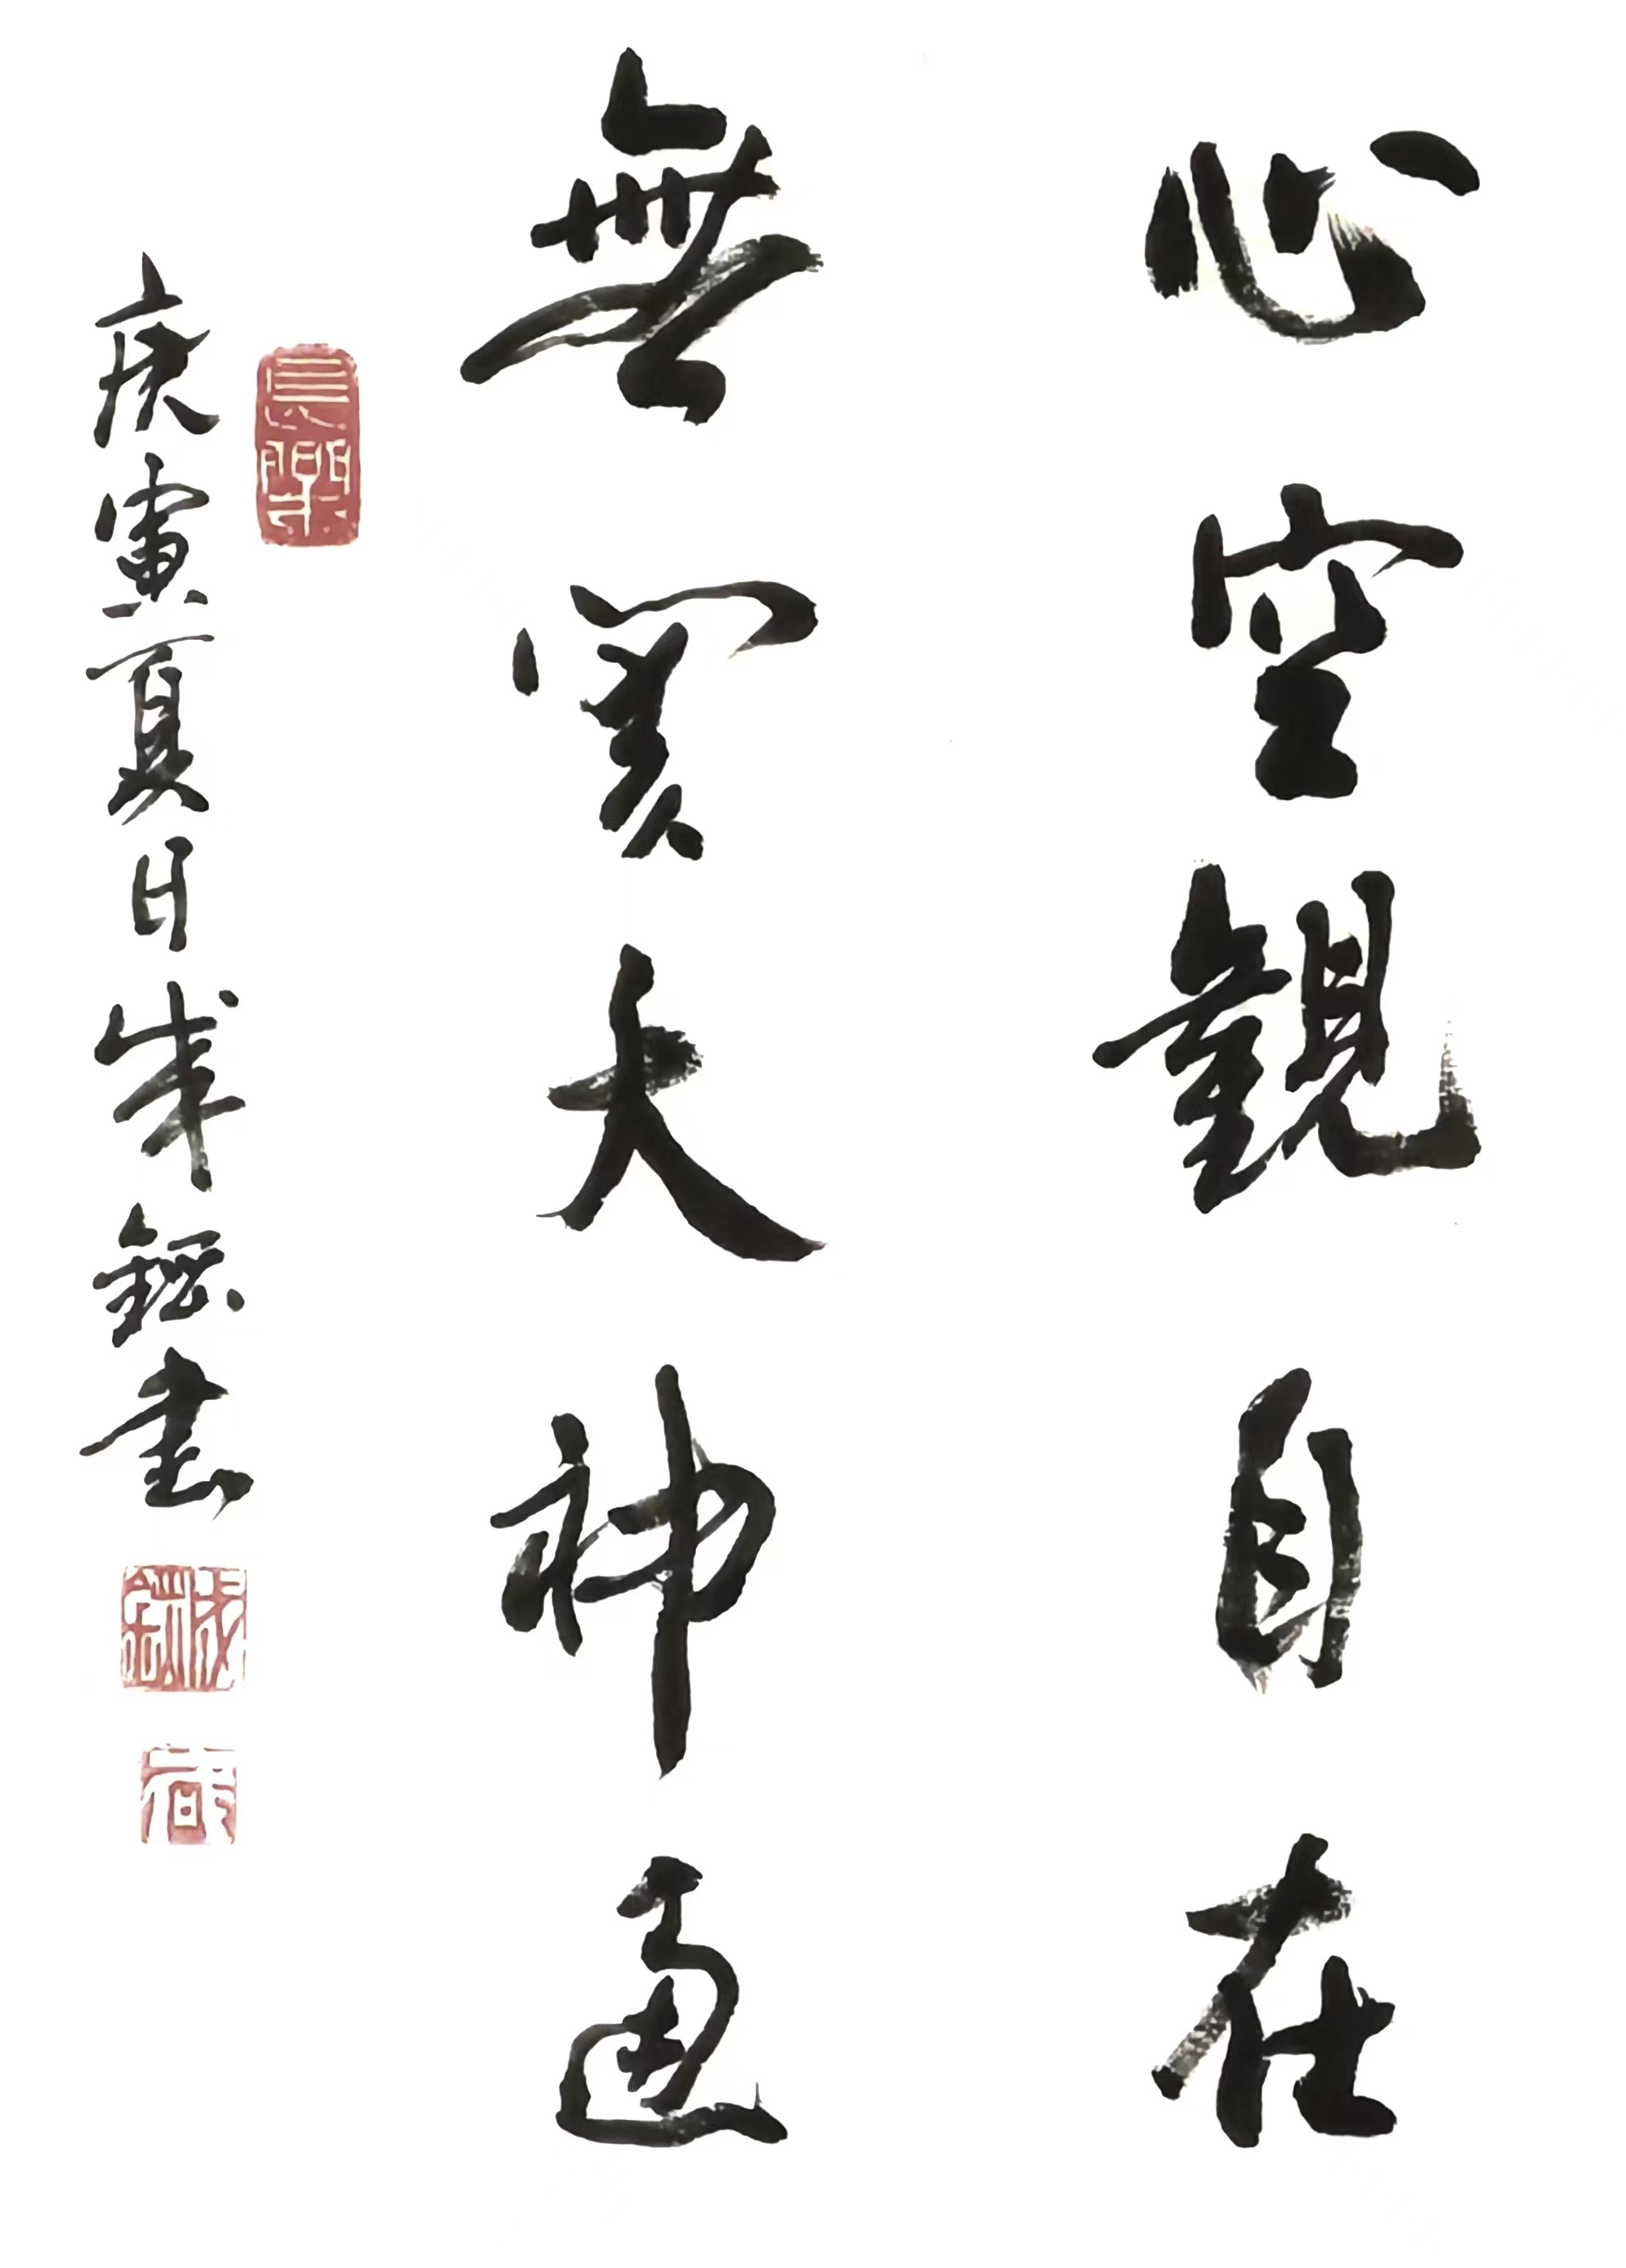 心空觀自在
無關大神通
庚寅夏日書
長樂